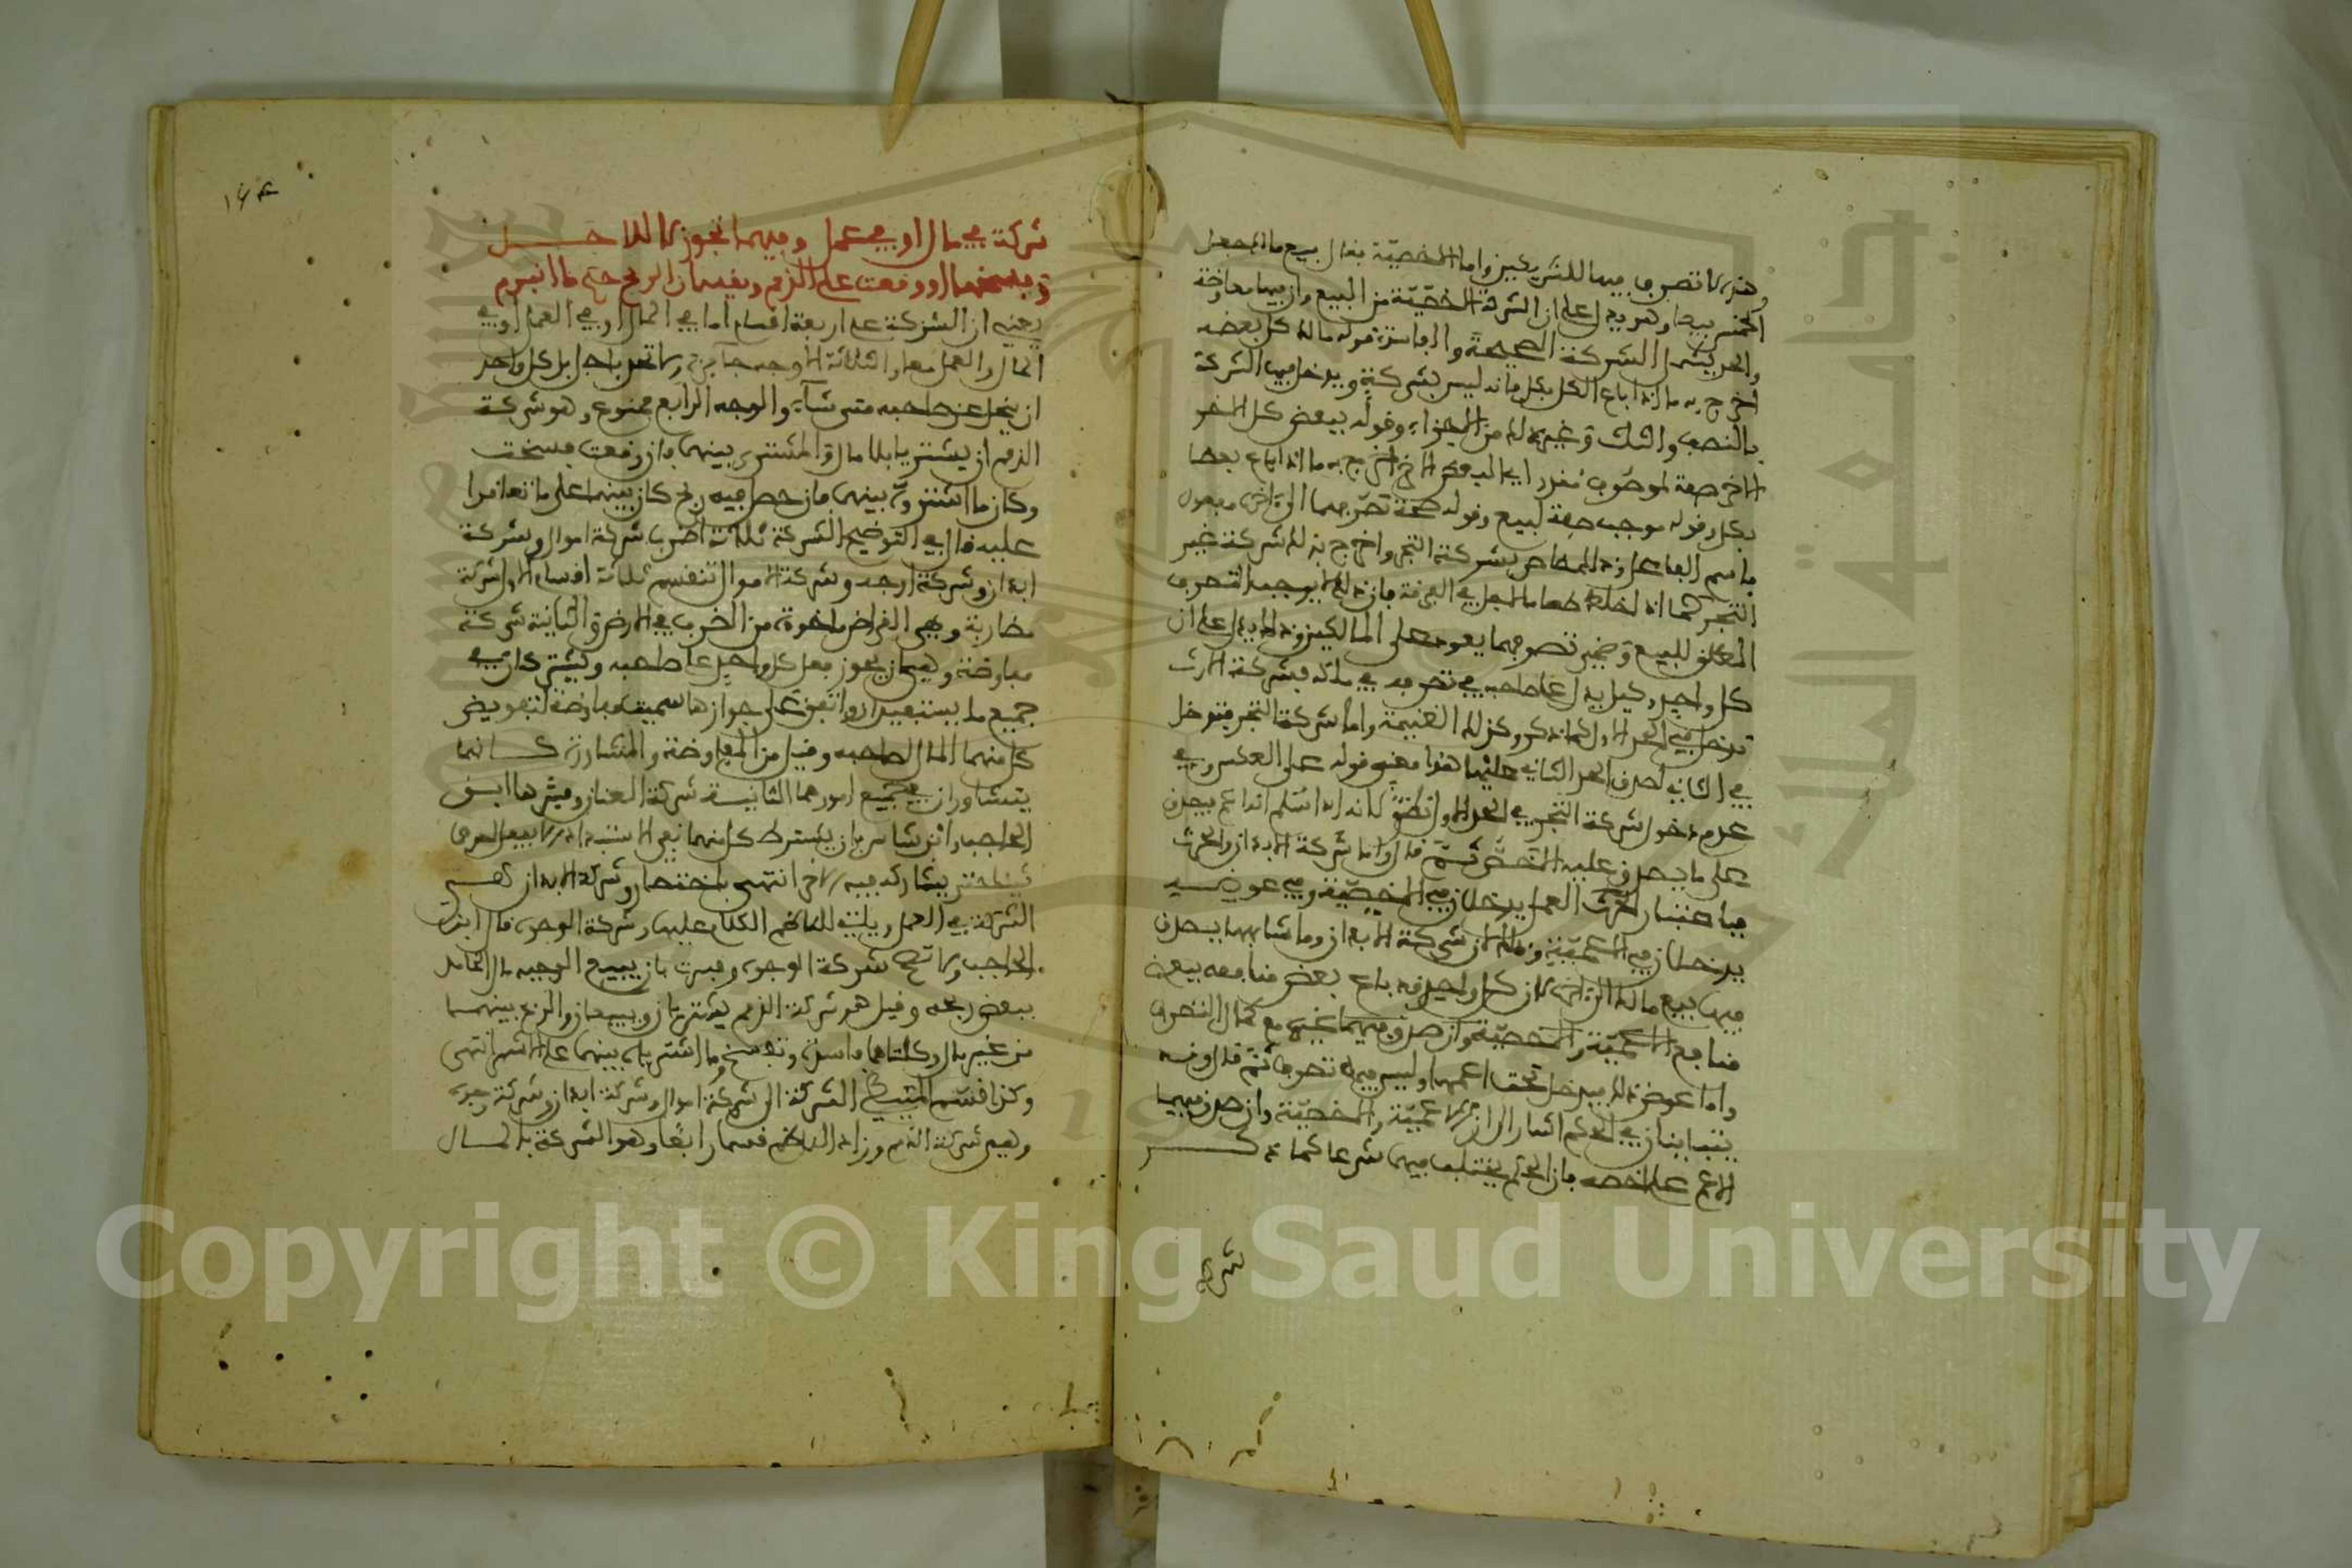 وهذه لا تصرف فيها للشريكين واما الاخصية فقال بيع مالك
الجنس بيعا وهو يدل على ان الشركة الاخصية من البيع وان فيها معاوضة
والحد يشمل الشركة الصحيحة والفاسدة قوله مالك كل بعضه
اخرج به ما اذا باع الكل بكل فانه ليس بشركة ويدخل فيه الشركة
بالنصف والثلث وغير ذلك من الاجزاء وقوله ببعض كل الاخر
الاخر صفة لموصوف مقدر اي البعض الاخر اخرج به ما اذا باع بعضا
بكل وقوله موجب صفة لبيع وقوله صحة تصرفهما
باسم الفاعل وذلك خاص بشركة التجر واخرج بذلك شركة غير
التجر كما اذا خلط طعاما للاكل في الرفقة فان ذلك لا يوجب التصرف
المطلق للجميع وضمير تصرفهما يعود على المالكين وذلك يدل على ان
كل واحد وكيل على صاحبه في تصرفه في ملكه فشركة الارث
تدخل في الحد الاول كما ذكر وكذلك الغنيمة واما شركة التجر فتدخل
في الثاني لصدق الحد الثاني عليها هذا معنى قوله على العكس وفي
عدم دخول شركة التجر في الحد الاول نظر لانه
على ما يصدق عليه الاخص ثم قال واما شركة الابدان والحرث
فباعتبار العمل يدخلان في الاخصية وفي عوضه
يدخلان في الاعمية وذلك لان شركة الابدان وما شابهها يصدق
فيها بيع مالك الى اخره لان كل واحد قد باع بعض منافعه ببعض
منافع
واما عوض ذلك فيدخل تحت اعمها وليس فيه تصرف ثم قال وقد
يتباينان في الحكم اشار الى ان الاعمية والاخصية وان صدق فيهما
الاعم على اخصه فان الحكم يختلف فيها شرعا كما ذكر
شركة
١٦٤
شركة في مال او في عمل وفيهما تجوز لا لاجل
وفسخها ان وقعت على الذمم ويقسمان الربح حكم ما انبرم
يعني ان الشركة على اربعة اقسام اما في المال او في العمل او في
المال والعمل معا والثلاثة الاوجه جائزة ولا تحد باجل بل كل واحد
ان ينحل عن صاحبه متى شاء والوجه الرابع ممنوع وهو شركة
الذمم ان يشتريا بلا مال والمشترى بينهما فان وقعت فسخت
وكان ما اشترى بينهما فان حصل فيه ربح كان بينهما على ما تعاقدا
عليه قال في التوضيح الشركة ثلاثة اضرب شركة اموال وشركة
ابدان وشركة اوجه وشركة الاموال تنقسم ثلاثة اقسام الاول شركة
مضاربة وهي القراض ماخوذة من الضرب في الارض والثانية شركة
مفاوضة وهي ان يجوز فعل كل واحد على صاحبه ويشتركان في
جميع ما يستفيدان واتفق على جوازها سميت مفاوضة لتفويض
كل منهما المال لصاحبه وقيل من المفاوضة والمشاورة كانهما
يتشاوران في جميع امورهما الثالثة شركة العنان وفسرها ابن
الحاجب وابن شاس بان يشترط كل منهما نفي الاستبداد لا يفعل احدهما
شيئا حتى يشاركه فيه الاخر انتهى باختصار وشركة الابدان هي
الشركة في العمل وياتي للناظم الكلام عليها وشركة الوجوه قال ابن
الحاجب ولا تصح شركة الوجوه وفسرت بان يبيع الوجيه مال الخامل
ببعض ربحه وقيل هي شركة الذمم يشتريان ويبيعان والربح بينهما
من غير مال وكلتاهما فاسدة وتفسخ وما اشترياه بينهما على الاشهر انتهى
وكذا قسم المتيطي الشركة الى شركة اموال وشركة ابدان وشركة وجوه
وهي شركة الذمم وزاد الناظم قسما رابعا وهو الشركة بالمال